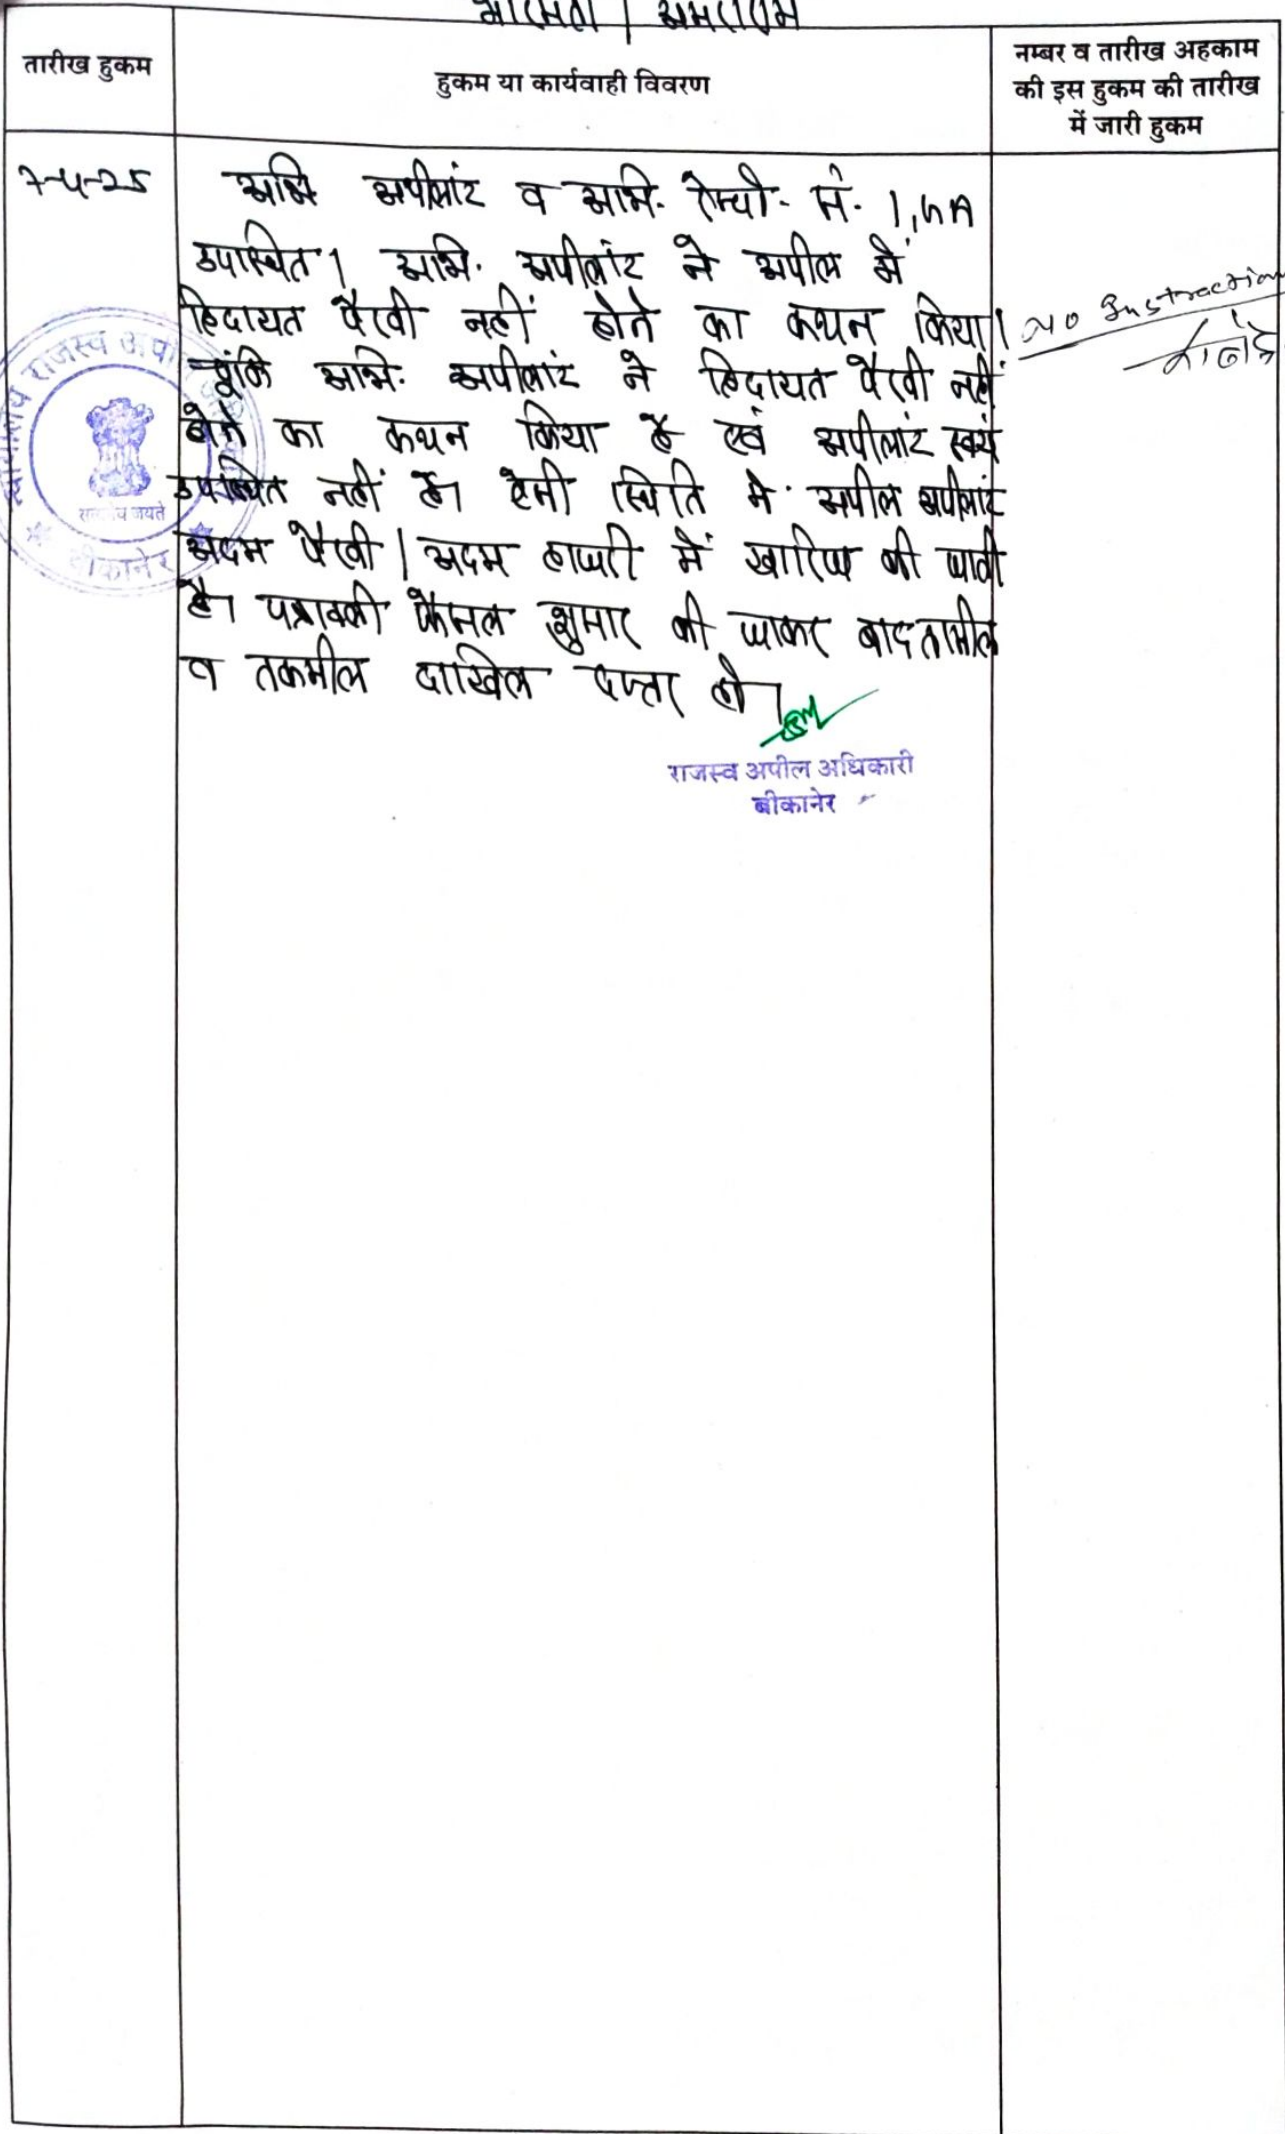 तारीख हुकम
हुकम या कार्यवाही विवरण
नम्बर व तारीख अहकाम
की इस हुकम की तारीख
में जारी हुकम
7-4-25
अभि अपीलांट व अभि. रेस्पो. नं. 1,
उपस्थित। अभि. अपीलांट ने अपील में
हिदायत पैरवी नहीं होने का कथन किया।
चूंकि अभि. अपीलांट ने हिदायत पैरवी नहीं
होने का कथन किया है एवं अपीलांट स्वयं
उपस्थित नहीं है। ऐसी स्थिति में अपील अपीलांट
अदम पैरवी / अदम हाजरी में खारिज की जाती
है। पत्रावली फैसल शुमार की जाकर बाद तामील
व तकमील दाखिल दफ्तर हो।
No Instraction
राजस्व अपील अधिकारी
बीकानेर
राजस्व अपी
सत्यमेव जयते
बीकानेर